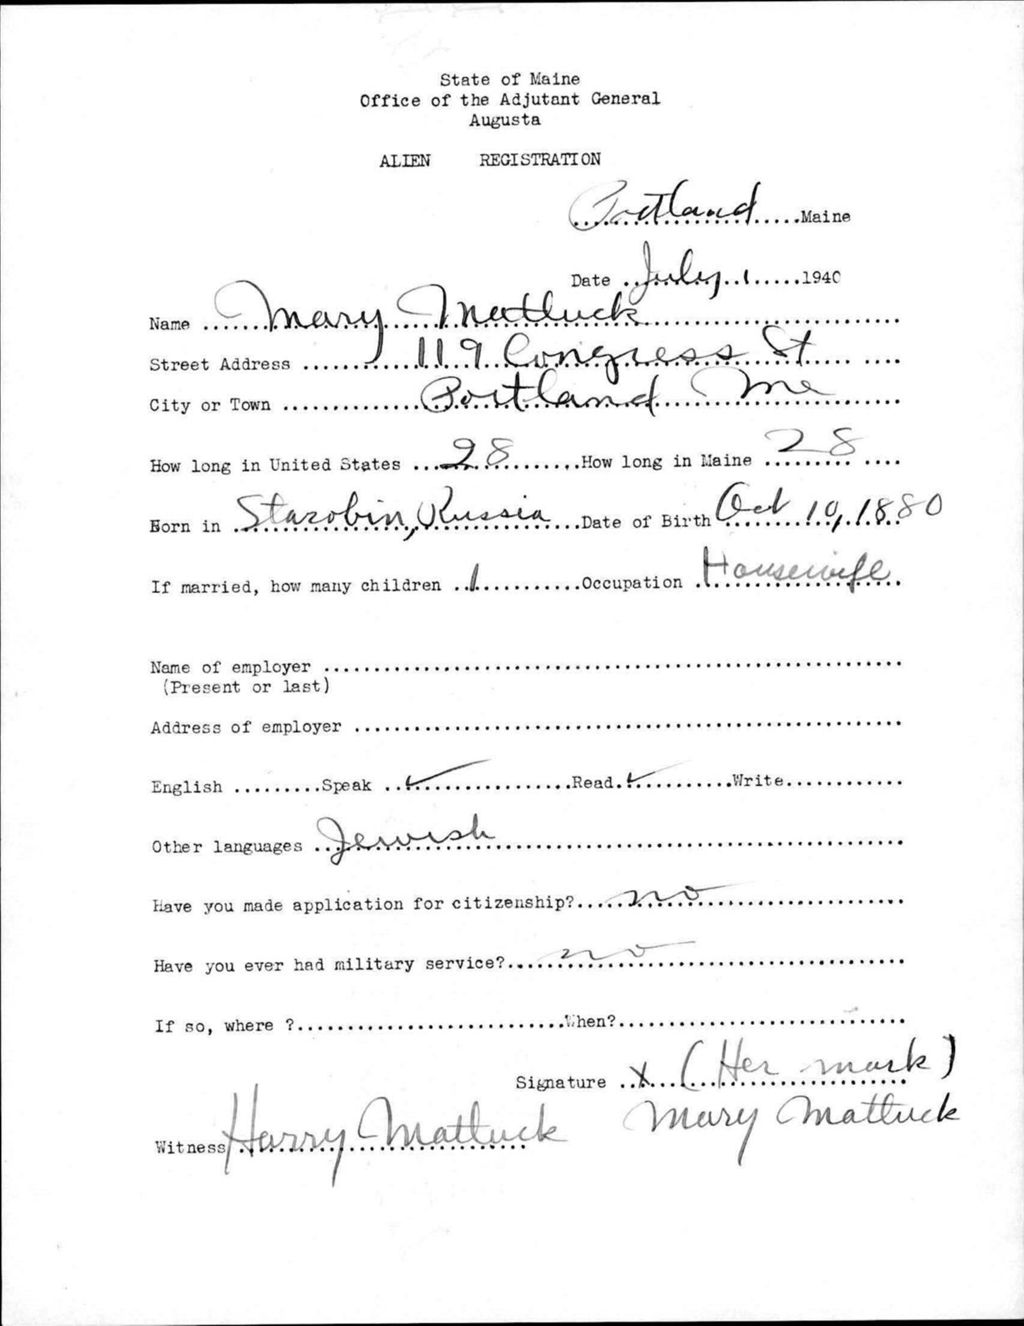 State of Maine
Office of the Adjutant General
Augusta
ALIEN REGISTRATION
Portland.....Maine
Date ..July..1.....1940
Name ......Mary Matluck..........................
Street Address .......119 Congress St .... ....
City or Town ..............Portland Me........
How long in United States ...28.........How long in Maine ..28.... ....
Born in .Starobin, Russia...Date of Birth Oct 10, 1880
If married, how many children ..1...........Occupation .Housewife..
Name of employer ..........................................................
(Present or last)
Address of employer .......................................................
English .........Speak ..✓................Read.✓..........Write............
Other languages ..Jewish.........................................
Have you made application for citizenship?.....no....................
Have you ever had military service?......no..........................
If so, where ?...........................When?.............................
Signature ..X (Her mark)
Mary Matluck
Witness Harry Matluck